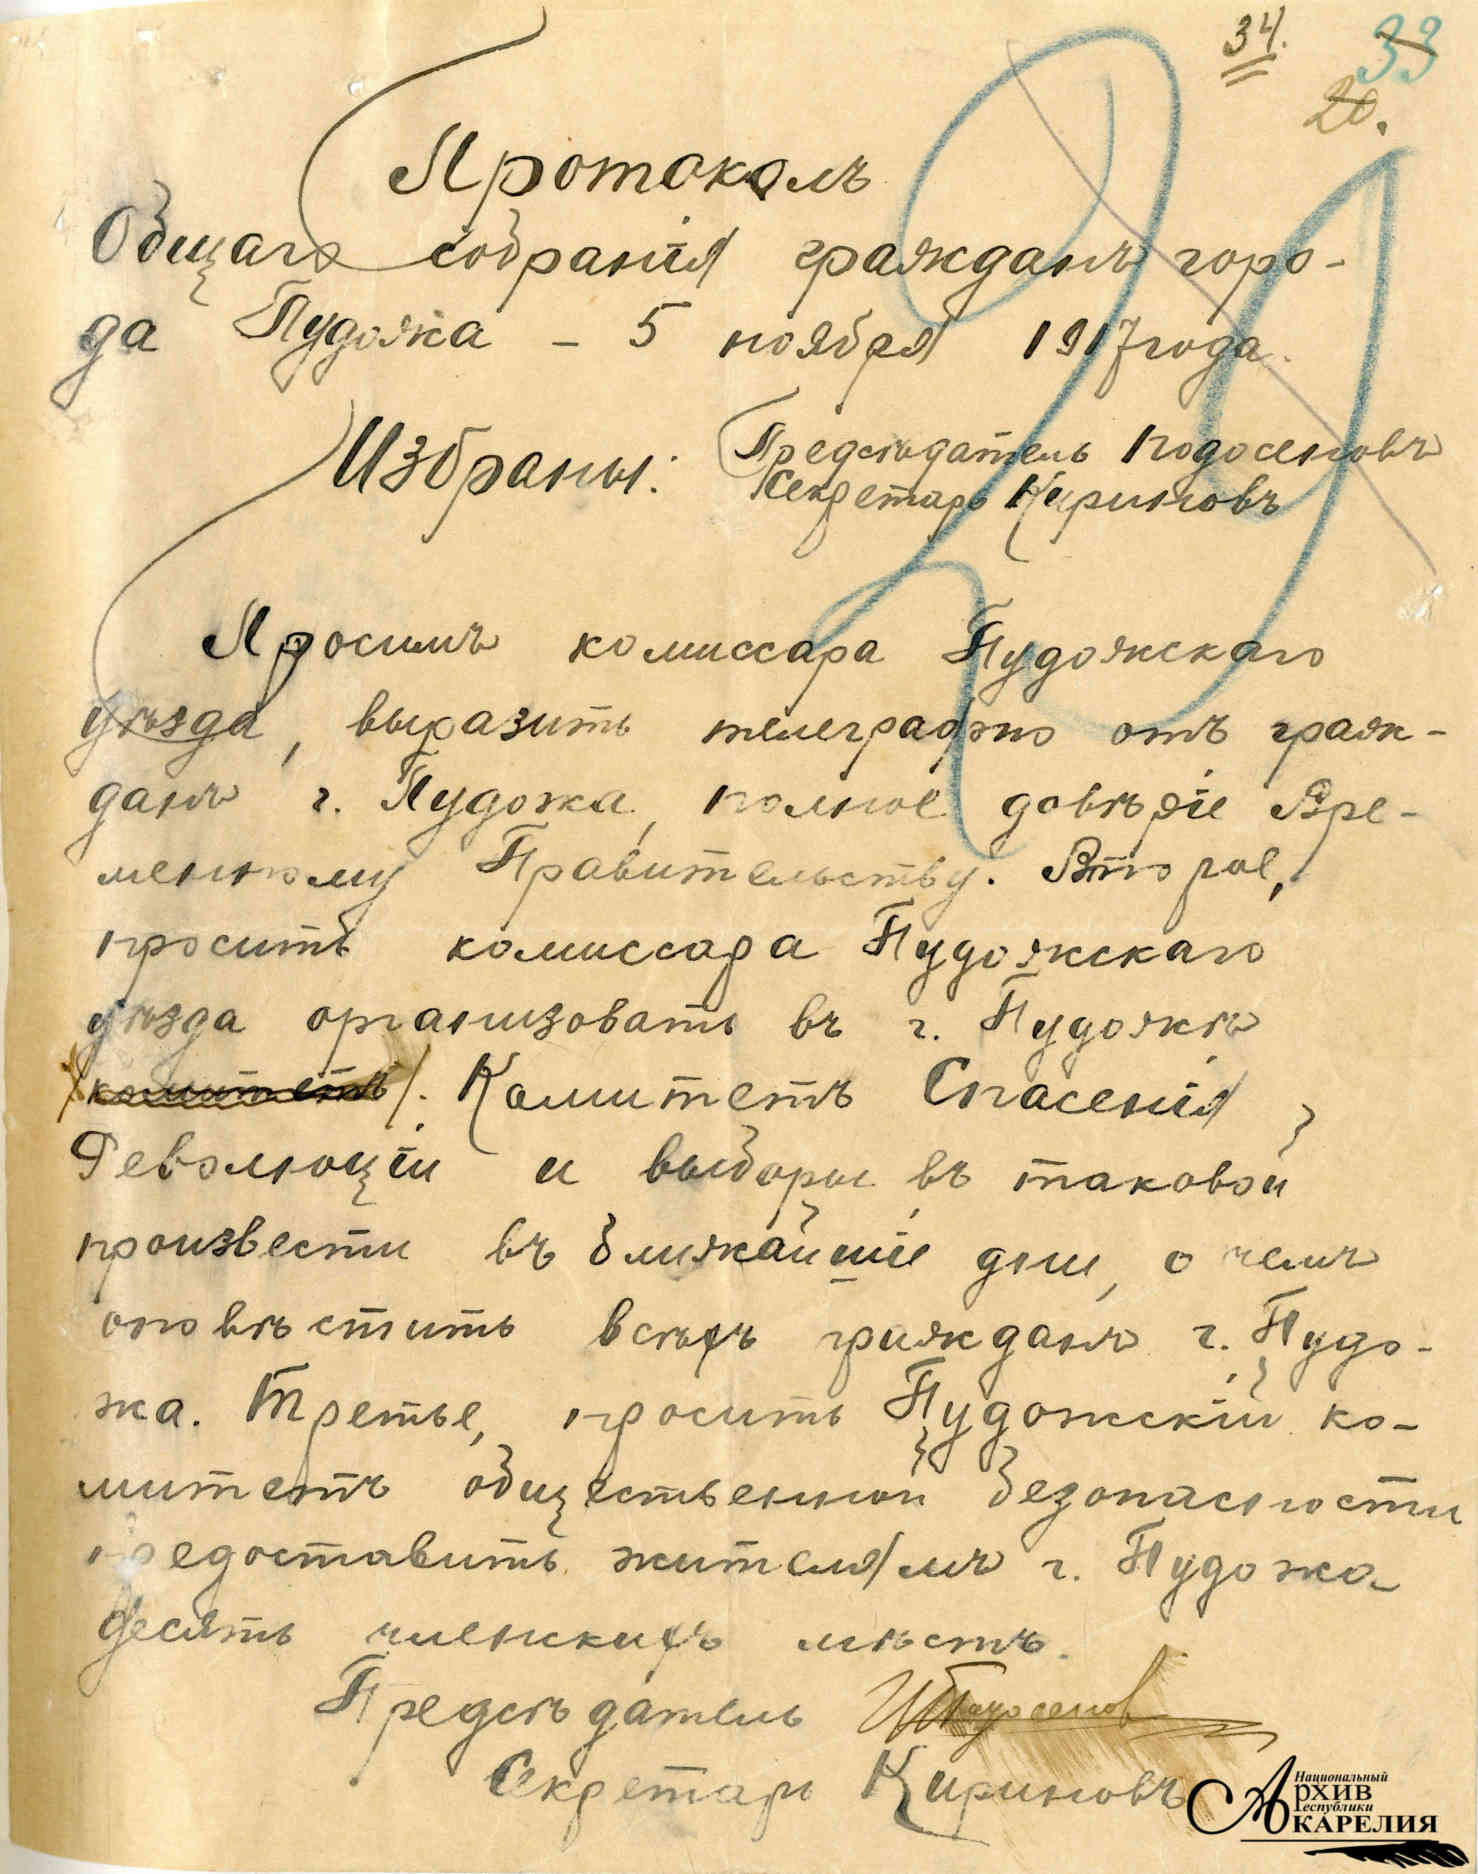 34.
33
20.
Протоколъ
Общаго собранія гражданъ горо-
да Пудожа - 5 ноября 1917 года.
Избраны: Предсѣдатель Подосеновъ
Секретарь Кириновъ
Просимъ комиссара Пудожскаго
уѣзда, выразить телеграфно отъ граж-
данъ г. Пудожа, полное довѣріе Вре-
менному Правительству. Второе,
просить комиссара Пудожскаго
уѣзда организовать въ г. Пудожѣ
комитетъ. Комитетъ Спасенія
Революціи и выборы въ таковой
произвести въ ближайшіе дни, о чемъ
оповѣстить всѣхъ гражданъ г. Пудо-
жа. Третье, просить Пудожскій ко-
митетъ общественной безопасности
предоставить жителямъ г. Пудожа
десять членскихъ мѣстъ.
Предсѣдатель Подосенов
Секретарь Кириновъ
Национальный
АРХИВ
Республики
КАРЕЛИЯ